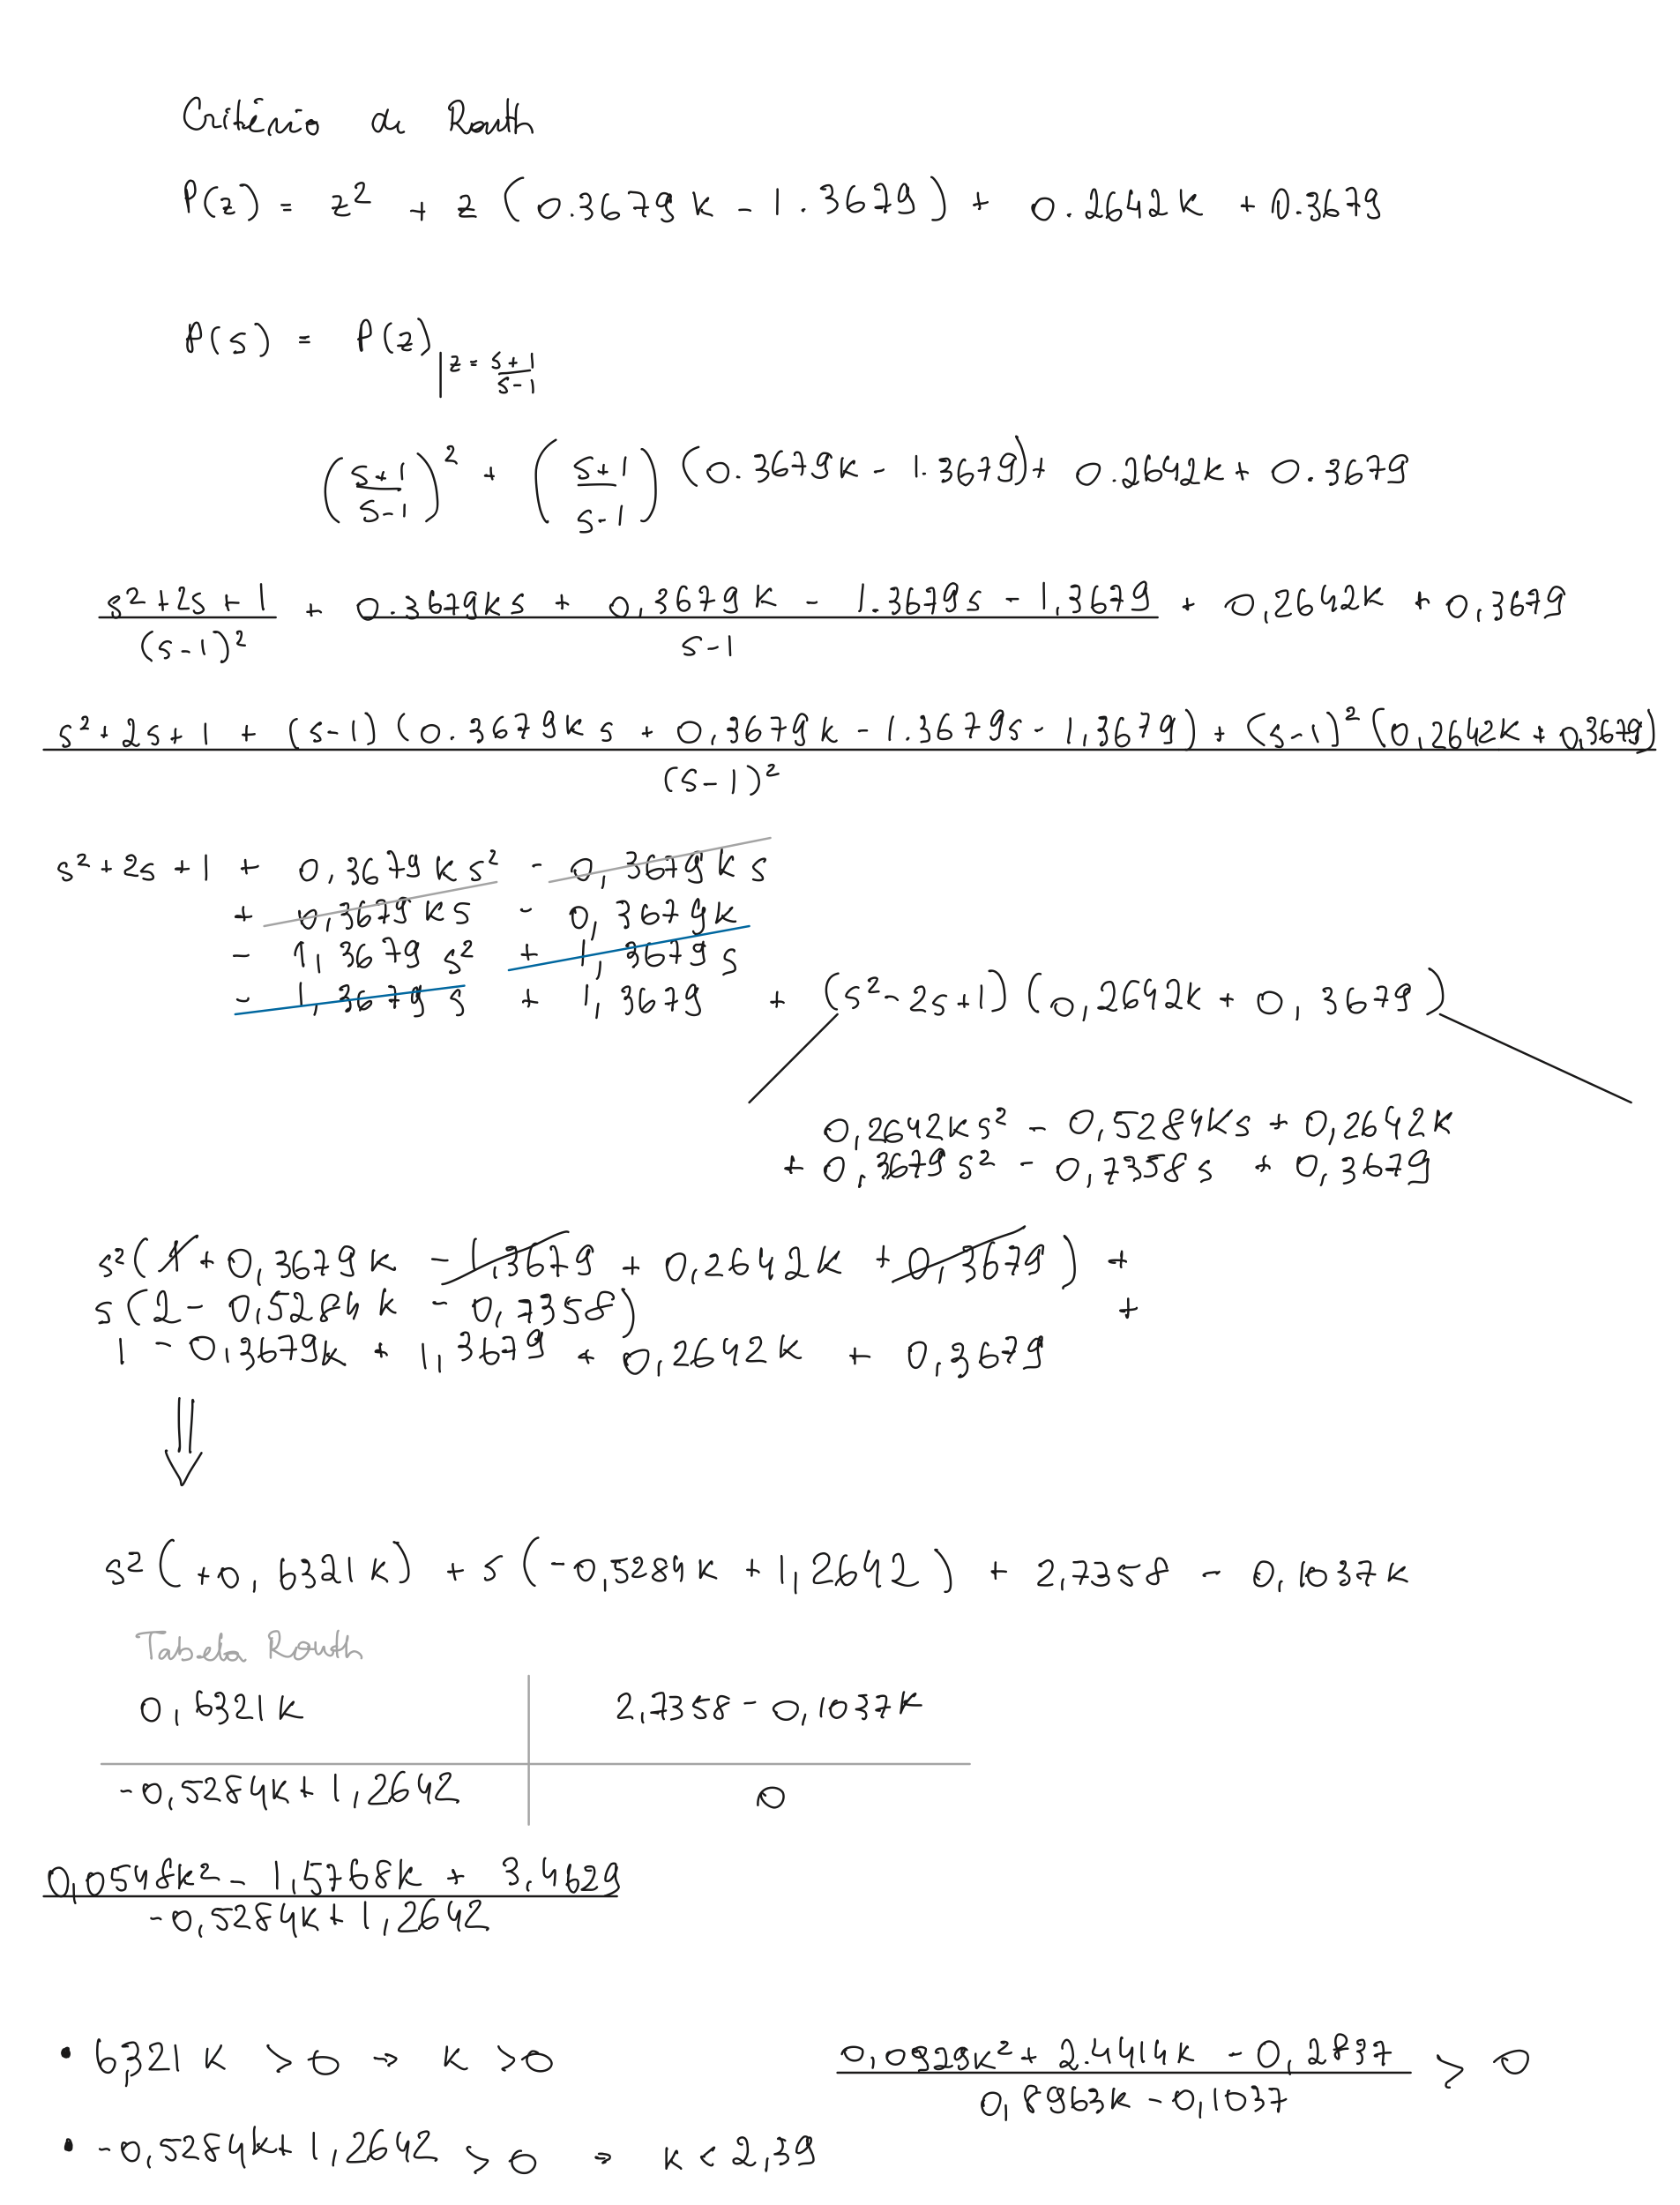 Critério de Routh
P(z) = z² + z (0.3679k - 1.3679) + 0.2642k + 0.3679
P(s) = P(z) |z = (s+1)/(s-1)
((s+1)/(s-1))² + ((s+1)/(s-1)) (0.3679k - 1.3679) + 0.2642k + 0.3679
(s²+2s+1)/(s-1)² + (0.3679ks + 0,3679k - 1.3679s - 1,3679)/(s-1) + 0,2642k + 0,3679
(s²+2s+1 + (s-1)(0.3679ks + 0,3679k - 1.3679s - 1,3679) + (s-1)²(0,2642k + 0,3679))/(s-1)²
s²+2s+1 + 0,3679ks² - 0,3679ks
+ 0,3679ks - 0,3679k
- 1,3679s² + 1,3679s
- 1,3679s + 1,3679 + (s²-2s+1)(0,2642k + 0,3679)
0,2642ks² - 0,5284ks + 0,2642k
+ 0,3679s² - 0,7358s + 0,3679
s²(1 + 0,3679k - 1,3679 + 0,2642k + 0,3679) +
s(2 - 0,5284k - 0,7358) +
1 - 0,3679k + 1,3679 + 0,2642k + 0,3679
⇓
s²(+0,6321k) + s(-0,5284k + 1,2642) + 2,7358 - 0,1037k
Tabela Routh
0,6321k 2,7358 - 0,1037k
-0,5284k + 1,2642 0
(0,0548k² - 1,5768k + 3,4629)/(-0,5284k + 1,2642)
• 6,321k > 0 → k > 0 (0,0929k² + 2.4414k - 0,2837)/(0,8963k - 0,1037) > 0
• -0,5284k + 1,2642 > 0 = k < 2,39